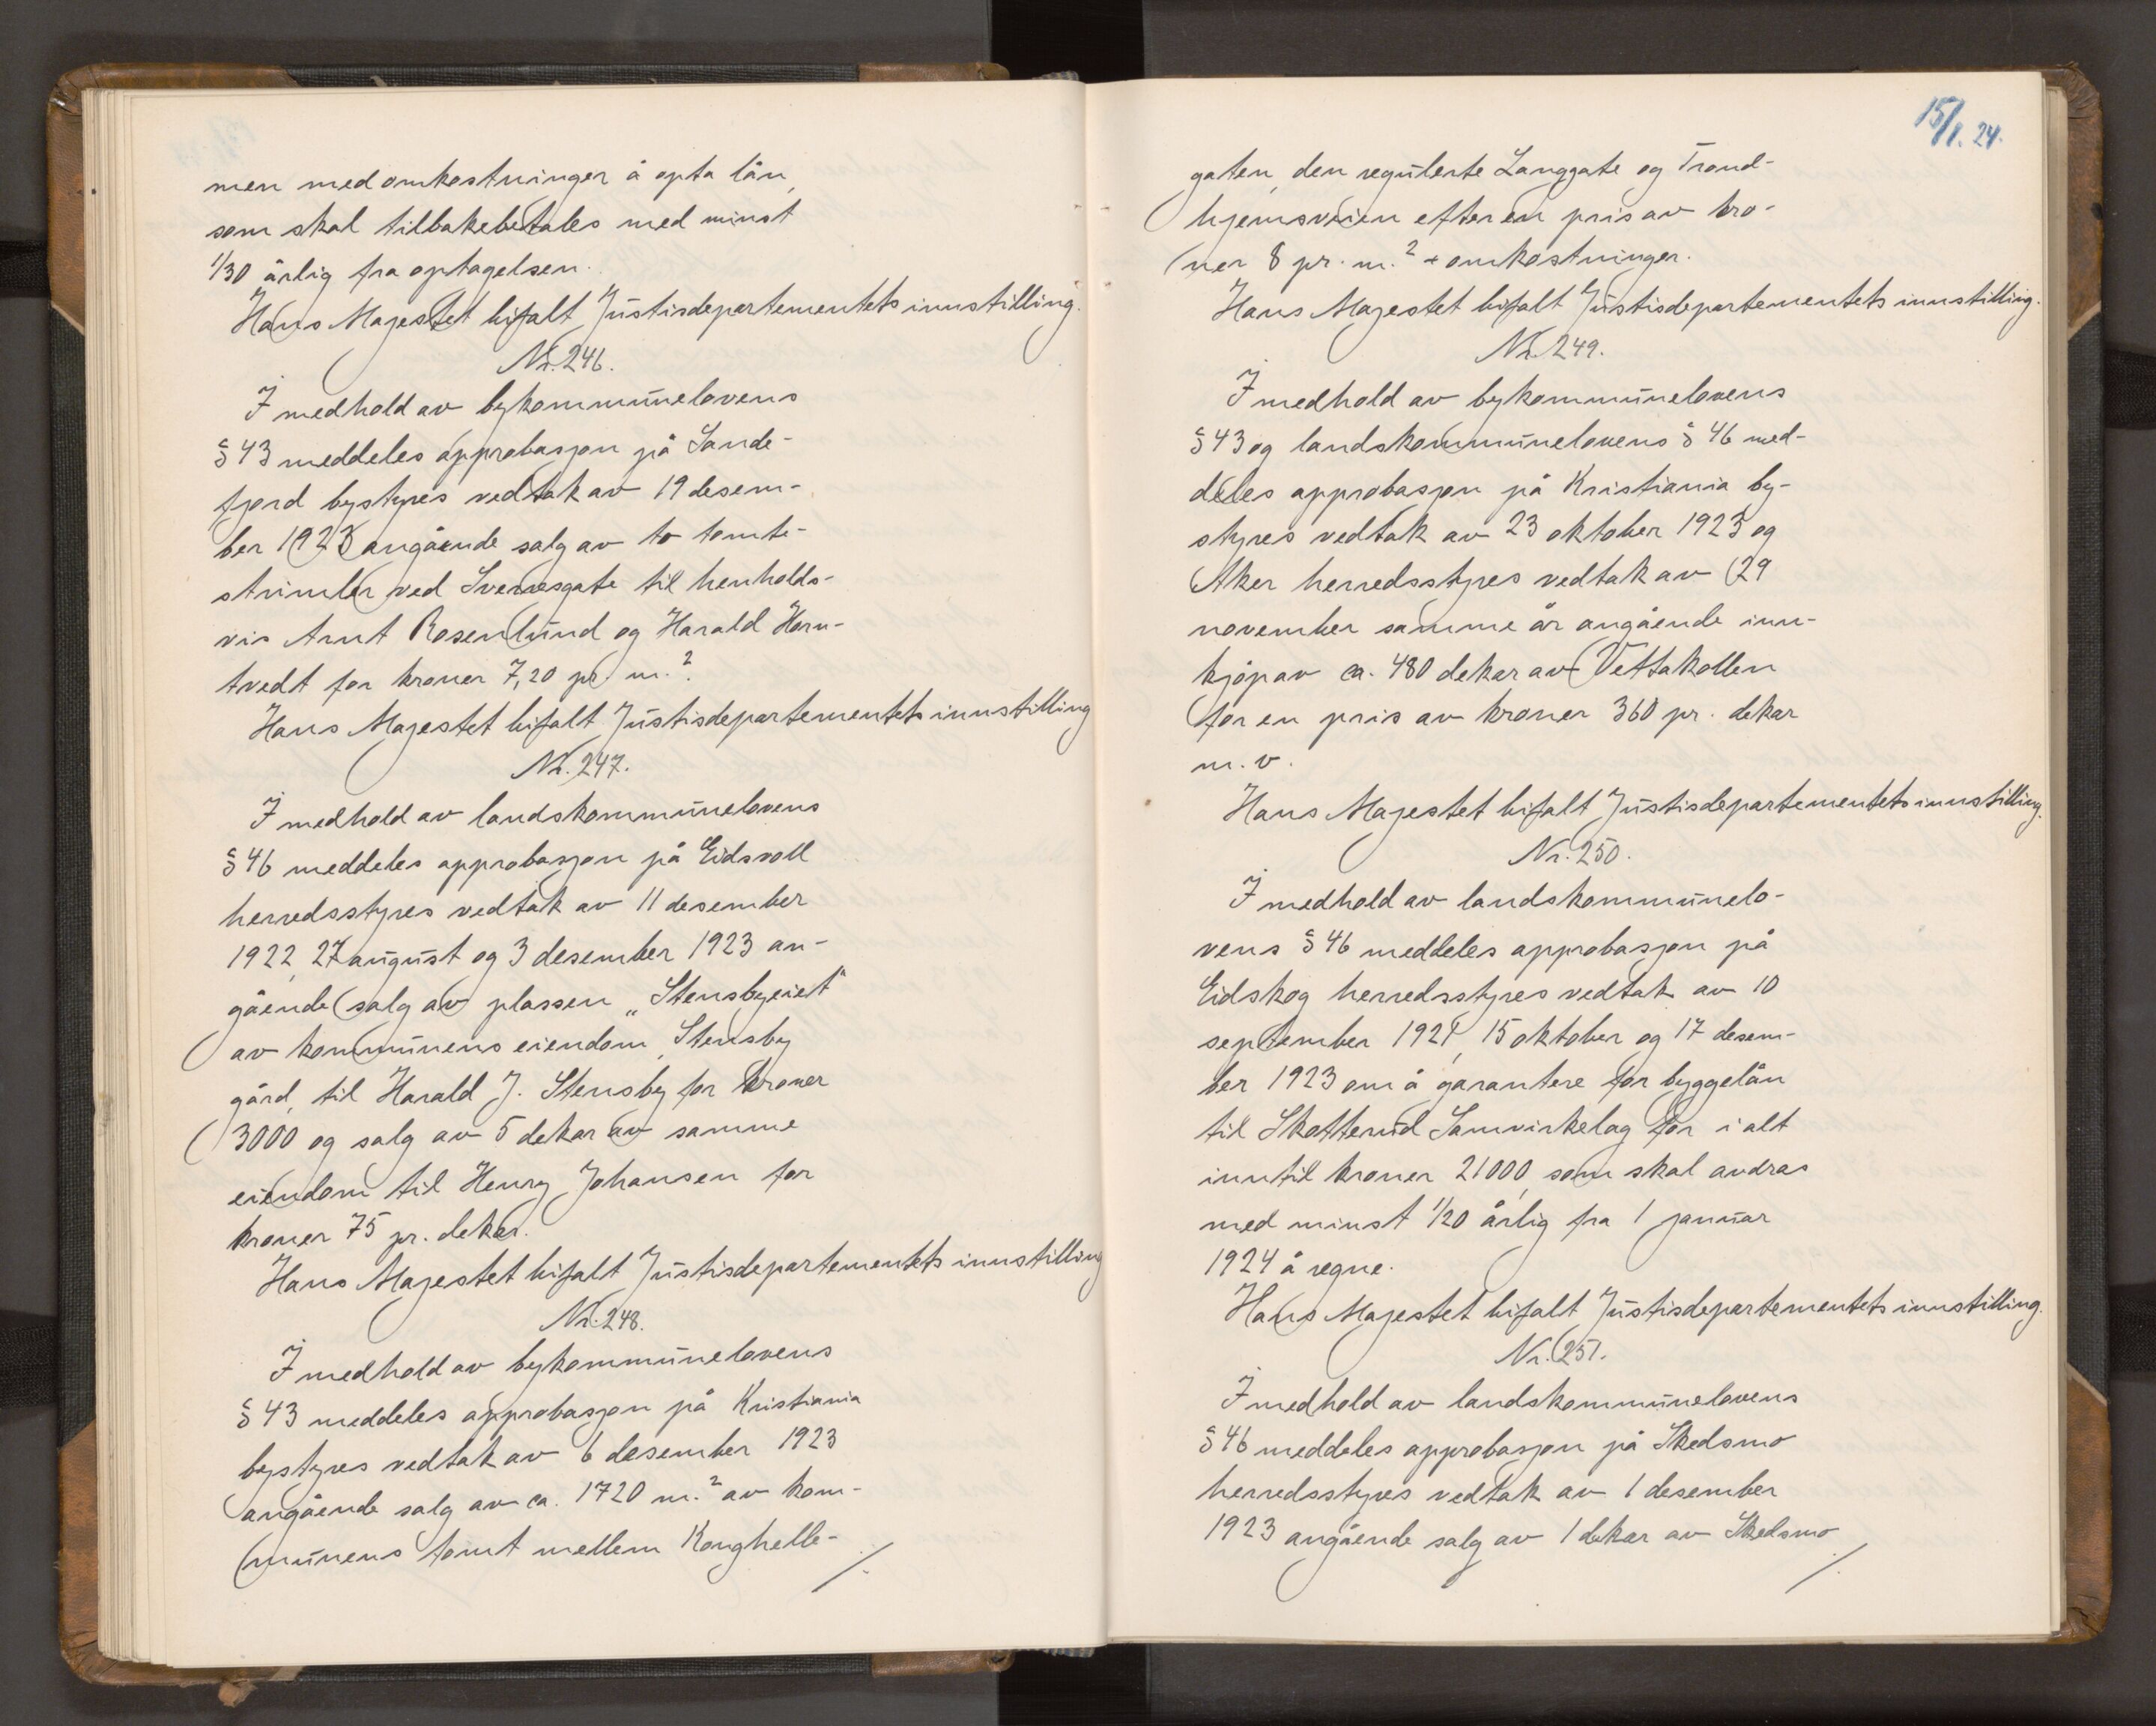 men med omkostninger å opta lån,
som skal tilbakebetales med minst
1/30 årlig fra optagelsen.
Hans Majestet bifalt Justisdepartementets innstilling.
Nr. 246.
I medhold av bykommunelovens
§ 43 meddeles approbasjon på Sande-
fjord bystyres vedtak av 19 desem-
ber 1923 angående salg av to tomte-
strimler ved Sverresgate til henholds-
vis Arnt Rosenlund og Harald Horn-
tvedt for kroner 7,20 pr. m.².
Hans Majestet bifalt Justisdepartementets innstilling
Nr. 247.
I medhold av landskommunelovens
§ 46 meddeles approbasjon på Eidsvoll
herredsstyres vedtak av 11 desember
1922, 27 august og 3 desember 1923 an-
gående salg av plassen „Stensbyeiet"
av kommunens eiendom, Stensby
gård, til Harald J. Stensby for kroner
3000 og salg av 5 dekar av samme
eiendom til Henry Johansen for
kroner 75 pr. dekar.
Hans Majestet bifalt Justisdepartementets innstilling
Nr. 248.
I medhold av bykommunelovens
§ 43 meddeles approbasjon på Kristiania
bystyres vedtak av 6 desember 1923
angående salg av ca. 1720 m.² av kom-
munens tomt mellem Konghelle-
./.
15/1. 24.
gaten, den regulerte Langgate og Trond-
hjemsveien efter en pris av kro-
ner 8 pr. m.² + omkostninger.
Hans Majestet bifalt Justisdepartementets innstilling.
Nr. 249.
I medhold av bykommunelovens
§ 43 og landskommunelovens § 46 med-
deles approbasjon på Kristiania by-
styres vedtak av 23 oktober 1923 og
Aker herredsstyres vedtak av 29
november samme år angående inn-
kjøp av ca. 480 dekar av Vettakollen
for en pris av kroner 360 pr. dekar
m. v.
Hans Majestet bifalt Justisdepartementets innstilling.
Nr. 250.
I medhold av landskommunelo-
vens § 46 meddeles approbasjon på
Eidskog herredsstyres vedtak av 10
september 1921, 15 oktober og 17 desem-
ber 1923 om å garantere for byggelån
til Skotterud Samvirkelag for i alt
inntil kroner 21000, som skal avdras
med minst 1/20 årlig fra 1 januar
1924 å regne.
Hans Majestet bifalt Justisdepartementets innstilling.
Nr. 251.
I medhold av landskommunelovens
§ 46 meddeles approbasjon på Skedsmo
herredsstyres vedtak av 1 desember
1923 angående salg av 1 dekar av Skedsmo
./.